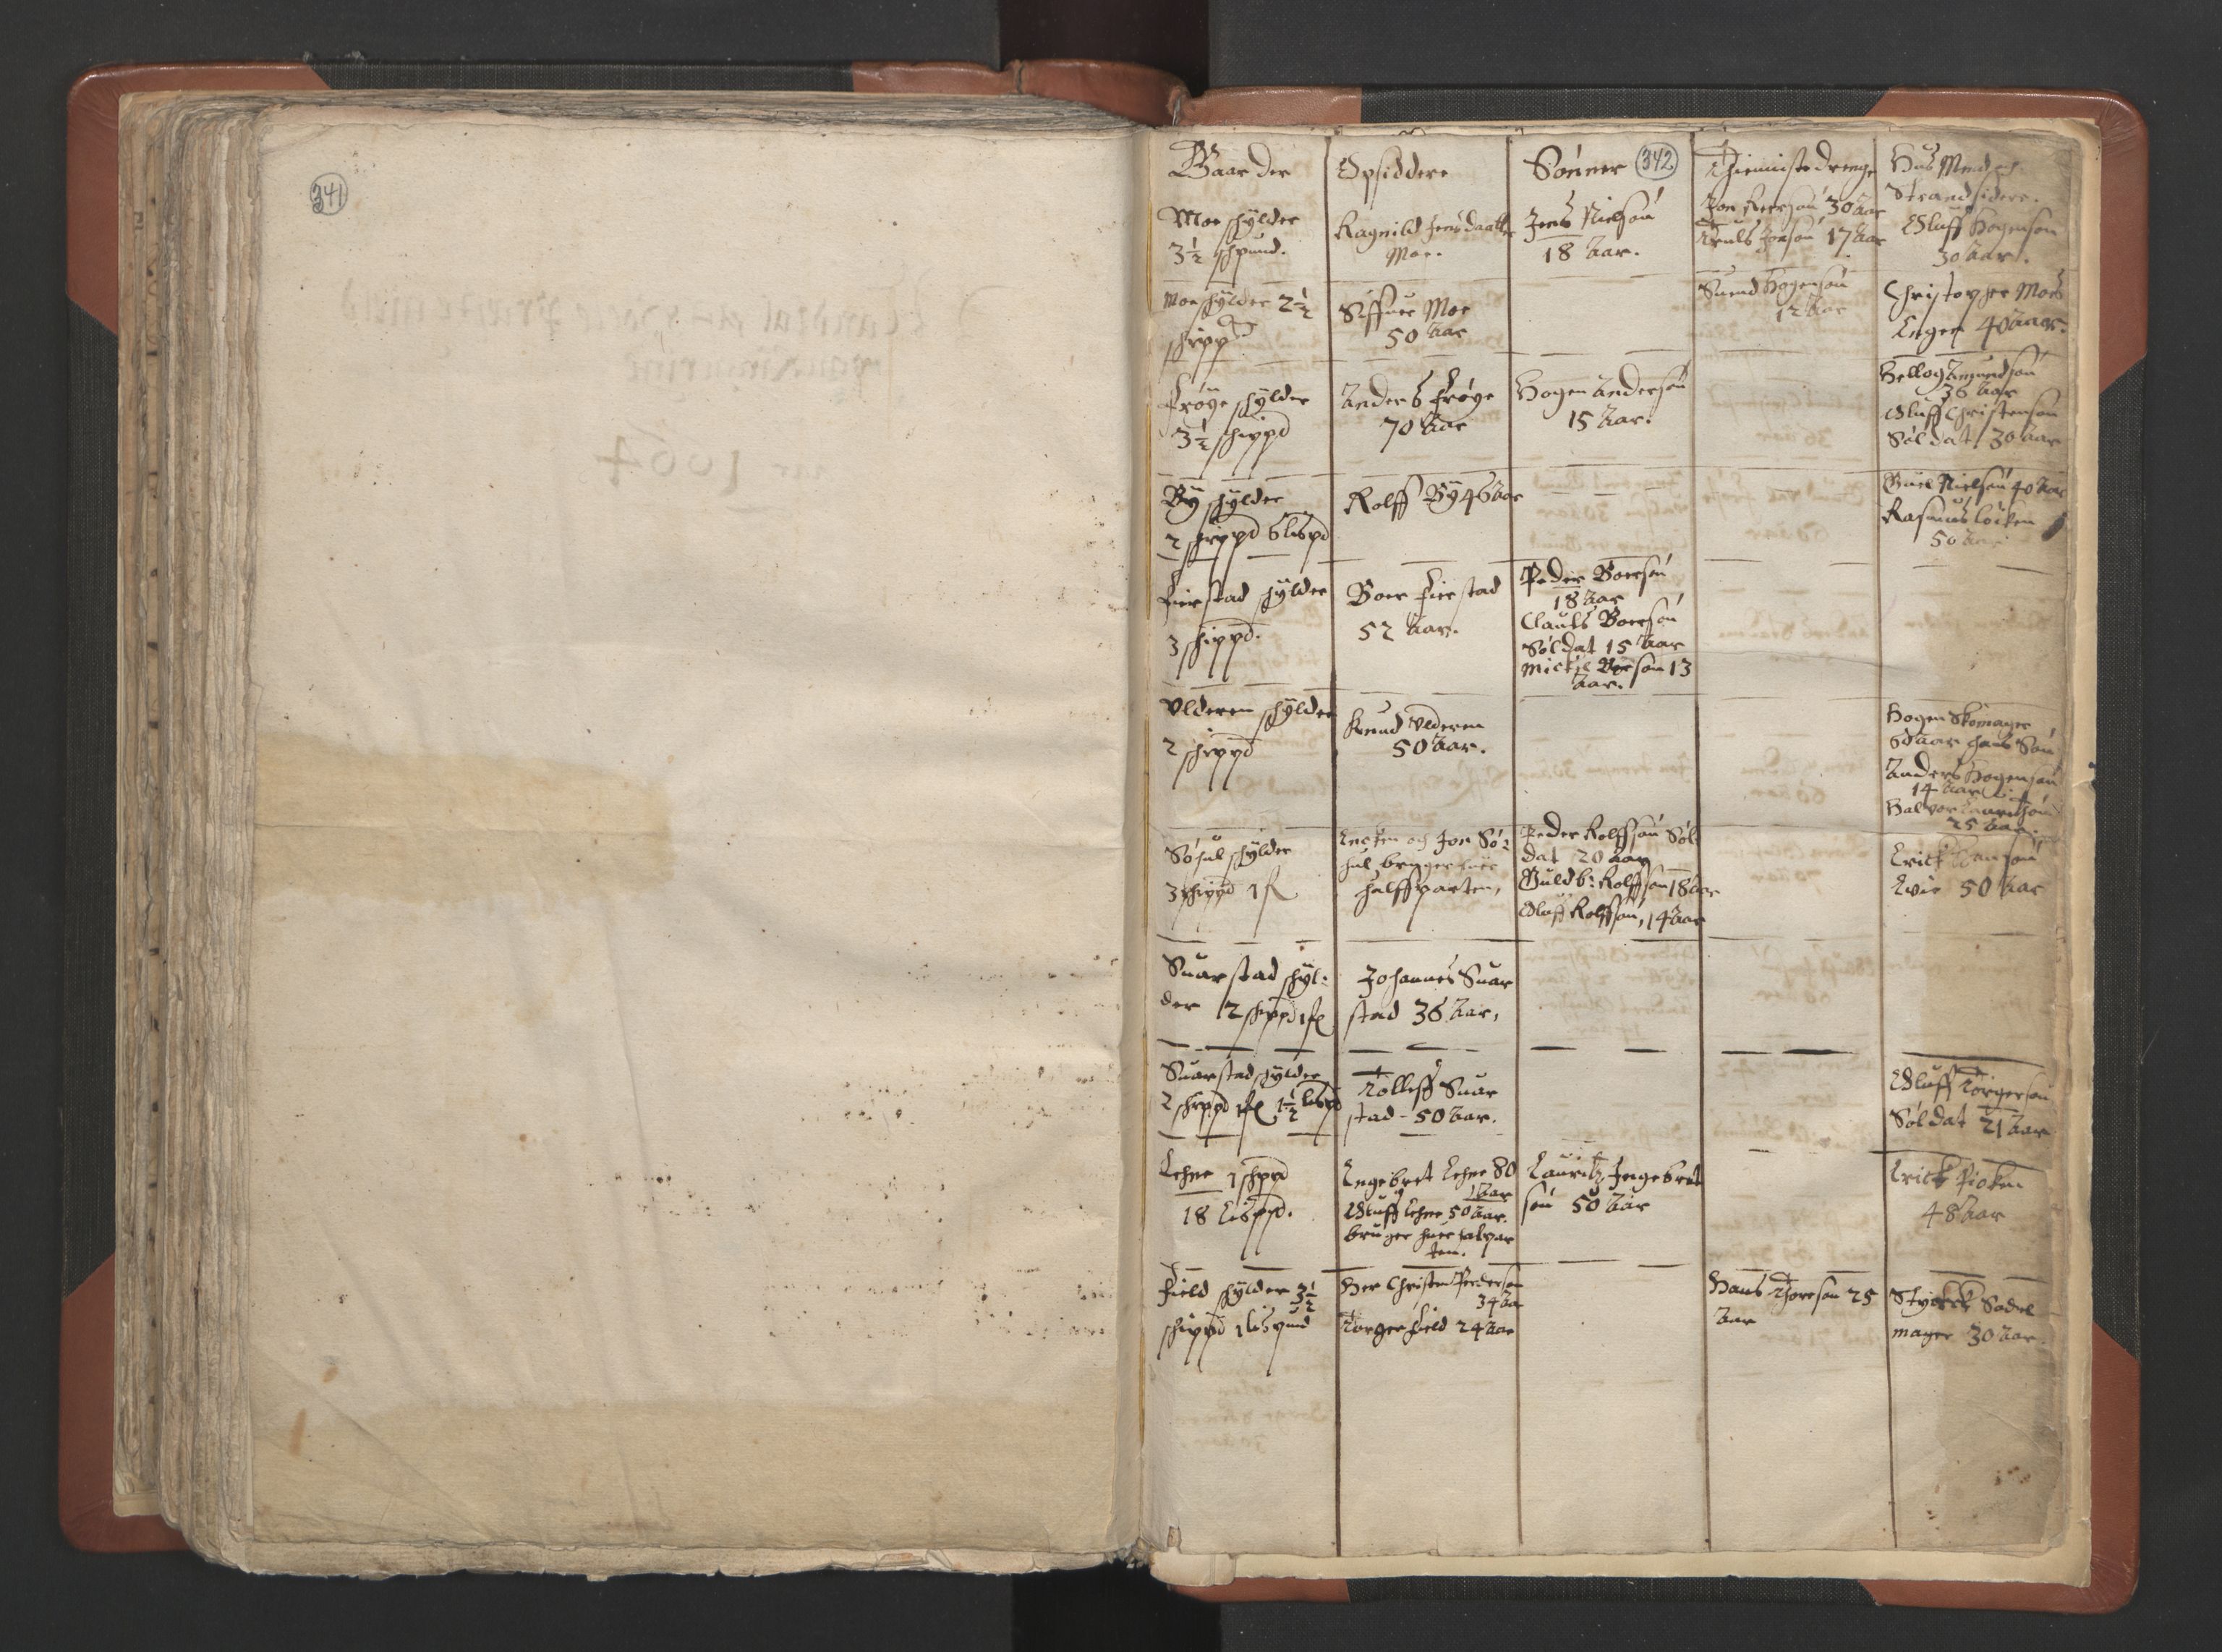 341
342
Gaarder
Opsiddere
Sønner
Thienniste drenge
Huus Mend och
Strandsidere.
Moe schylder
3½ schpund.
Ragnild Jens daatter
Moe.
Jens Nielsøn
18 Aar.
30 Aar
Truls Jonsøn 17 Aar
Oluff Hogensøn
30 Aar.
Moe schylder 2½
schippd
Siffuer Moe
50 Aar
Suend Hogensøn
12 Aar
Christopher Moes
Enger 40 Aar.
Frøye schylder
3½ schippd
Anders Frøye
70 Aar
Hogen Andersøn
15 Aar.
Helleg Amundsøn
36 Aar
Oluff Christensøn
Soldat, 30 Aar
By schylder
2 schippd 5 lispd
Rolff By 46 Aar
Nielsøn 40 Aar
Rasmus
50 Aar
Fierstad schylder
3 schippd.
Boer Fierstad
52 Aar.
Peder Boersøn
18 Aar
Clauls Boersøn
Soldat 15 Aar
Mickel Boersøn 13
Aar.
Vlderen schylder
2 schippd
Knud Vlderen
50 Aar.
Hogen Skomager
60 Aar hans Søn
Anders Hogensøn
14 Aar
Halvor Lauritzøn
25 Aar
Søhul schylder
3 schippd 1 fl
och Jon Sø-
hul bruger huer
halffparten,
Peder Rolffsøn Sol-
dat 20 Aar
Guldb: Rolffsøn 18 Aar
Oluff Rolffsøn, 14 Aar
Erick Hansøn
50 Aar
Suarstad schyl-
der 2 schippd 1 fl
Johannes Suar
stad 36 Aar,
Suarstad schylder
2 schippd 1 fl 1½ lispd
Tolleff Suar
stad - 50 Aar.
Oluff Torgersøn
Soldat 21 Aar
Lehne 1 schppd
18 Lisppd.
Engebret Lehne 80
Aar
Oluff Lehne 50 Aar.
bruger huer halpar
ten.
Lauritz Ingebret
søn 50 Aar
Erick
48 Aar
Field schylder 3½
schippd 1 lispund
Her Christen Pedersøn
34 Aar
Torger Field 24 Aar
Hans Thoresøn 25
Aar
Sadel
mager 30 Aar.